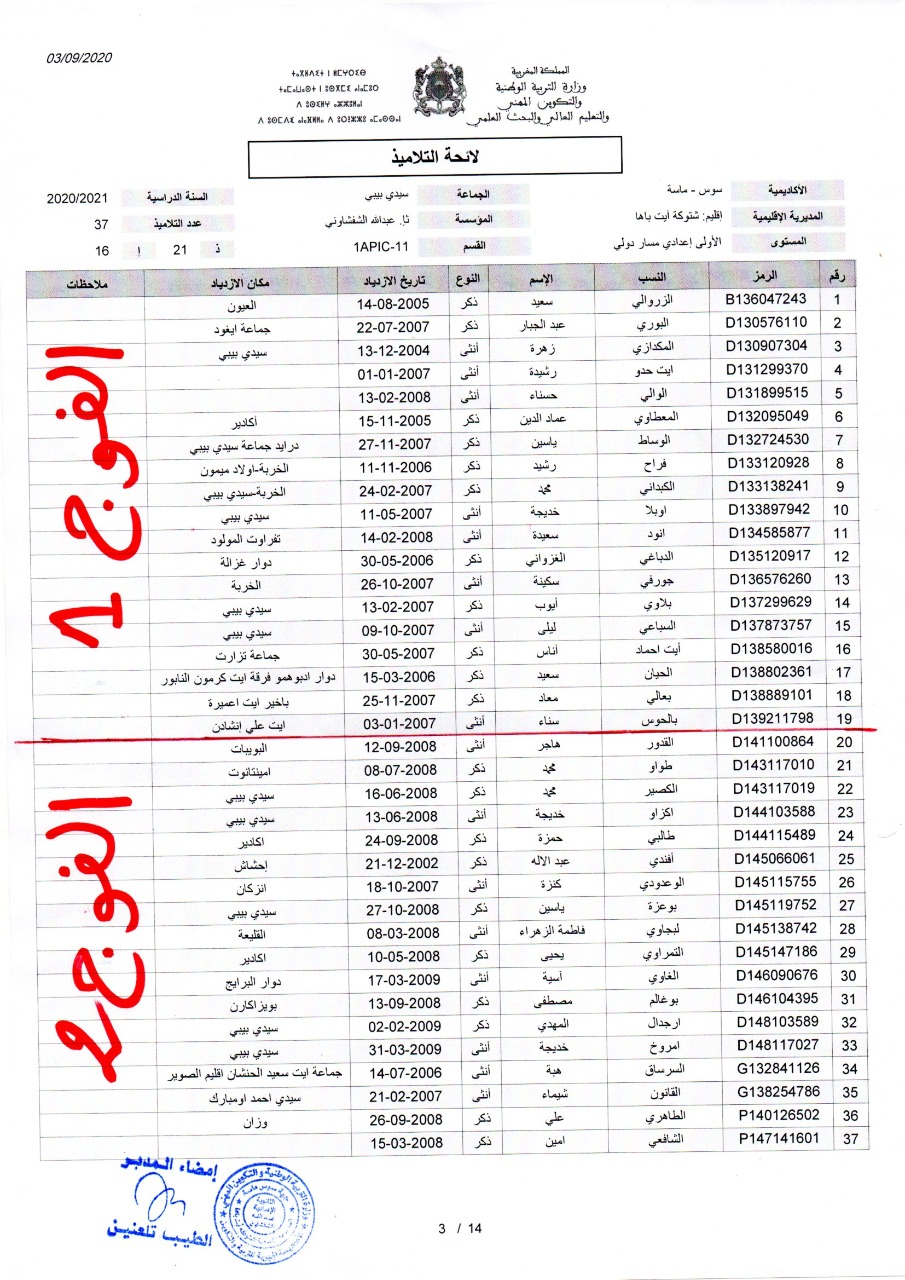 03/09/2020
المملكة المغربية
وزارة التربية الوطنية
والتكوين المهني
والتعليم العالي والبحث العلمي
ⵜⴰⴳⵍⴷⵉⵜ ⵏ ⵍⵎⵖⵔⵉⴱ
لائحة التلاميذ
الأكاديمية سوس - ماسة الجماعة سيدي بيبي السنة الدراسية 2020/2021
المديرية الإقليمية إقليم: شتوكة آيت باها المؤسسة ثا. عبدالله الشفشاوني عدد التلاميذ 37
المستوى الأولى إعدادي مسار دولي القسم 1APIC-11 ذ 21 إ 16
رقم الرمز النسب الإسم النوع تاريخ الازدياد مكان الازدياد ملاحظات
1 B136047243 الزروالي سعيد ذكر 14-08-2005 العيون
2 D130576110 البوري عبد الجبار ذكر 22-07-2007 جماعة ايغود
3 D130907304 المكدازي زهرة أنثى 13-12-2004 سيدي بيبي
4 D131299370 ايت حدو رشيدة أنثى 01-01-2007
5 D131899515 الوالي حسناء أنثى 13-02-2008
6 D132095049 المعطاوي عماد الدين ذكر 15-11-2005 أكادير
7 D132724530 الوساط ياسين ذكر 27-11-2007 درايد جماعة سيدي بيبي
8 D133120928 فراح رشيد ذكر 11-11-2006 الخربة-اولاد ميمون
9 D133138241 الكيداني محمد ذكر 24-02-2007 الخربة-سيدي بيبي
10 D133897942 اوبلا خديجة أنثى 11-05-2007 سيدي بيبي
11 D134585877 انود سعيدة أنثى 14-02-2008 تفراوت المولود
12 D135120917 الدباغي الغزواني ذكر 30-05-2006 دوار غزالة
13 D136576260 جورفي سكينة أنثى 26-10-2007 الخربة
14 D137299629 بلاوي أيوب ذكر 13-02-2007 سيدي بيبي
15 D137873757 السباعي ليلى أنثى 09-10-2007 سيدي بيبي
16 D138580016 أيت احماد أناس ذكر 30-05-2007 جماعة تزارت
17 D138802361 الحيان سعيد ذكر 15-03-2006 دوار ادبوهمو فرقة ايت كرمون النابور
18 D138889101 بعالي معاد ذكر 25-11-2007 باخير ايت اعميرة
19 D139211798 بالحوس سناء أنثى 03-01-2007 ايت علي إنشادن
الفوج 1
20 D141100864 القدور هاجر أنثى 12-09-2008 البويبات
21 D143117010 طواو محمد ذكر 08-07-2008 امينتانوت
22 D143117019 الكصير محمد ذكر 16-06-2008 سيدي بيبي
23 D144103588 اكزاو خديجة أنثى 13-06-2008 سيدي بيبي
24 D144115489 طالبي حمزة ذكر 24-09-2008 اكادير
25 D145066061 أفندي عبد الاله ذكر 21-12-2002 إحشاش
26 D145115755 الوعدودي كنزة أنثى 18-10-2007 انزكان
27 D145119752 بوعزة ياسين ذكر 27-10-2008 سيدي بيبي
28 D145138742 لبجاوي فاطمة الزهراء أنثى 08-03-2008 القليعة
29 D145147186 التمراوي يحيى ذكر 10-05-2008 اكادير
30 D146090676 الغاوي أسية أنثى 17-03-2009 دوار البرايج
31 D146104395 بوغالم مصطفى ذكر 13-09-2008 بويزاكارن
32 D148103589 ارجدال المهدي ذكر 02-02-2009 سيدي بيبي
33 D148117027 امروخ خديجة أنثى 31-03-2009 سيدي بيبي
34 G132841126 السرساق هبة أنثى 14-07-2006 جماعة ايت سعيد الحنشان اقليم الصوير
35 G138254786 القانون شيماء أنثى 21-02-2007 سيدي احمد اومبارك
36 P140126502 الطاهري علي ذكر 26-09-2008 وزان
37 P147141601 الشافعي امين ذكر 15-03-2008
الفوج 2
إمضاء المدير
الطيب تلعنين
3 / 14